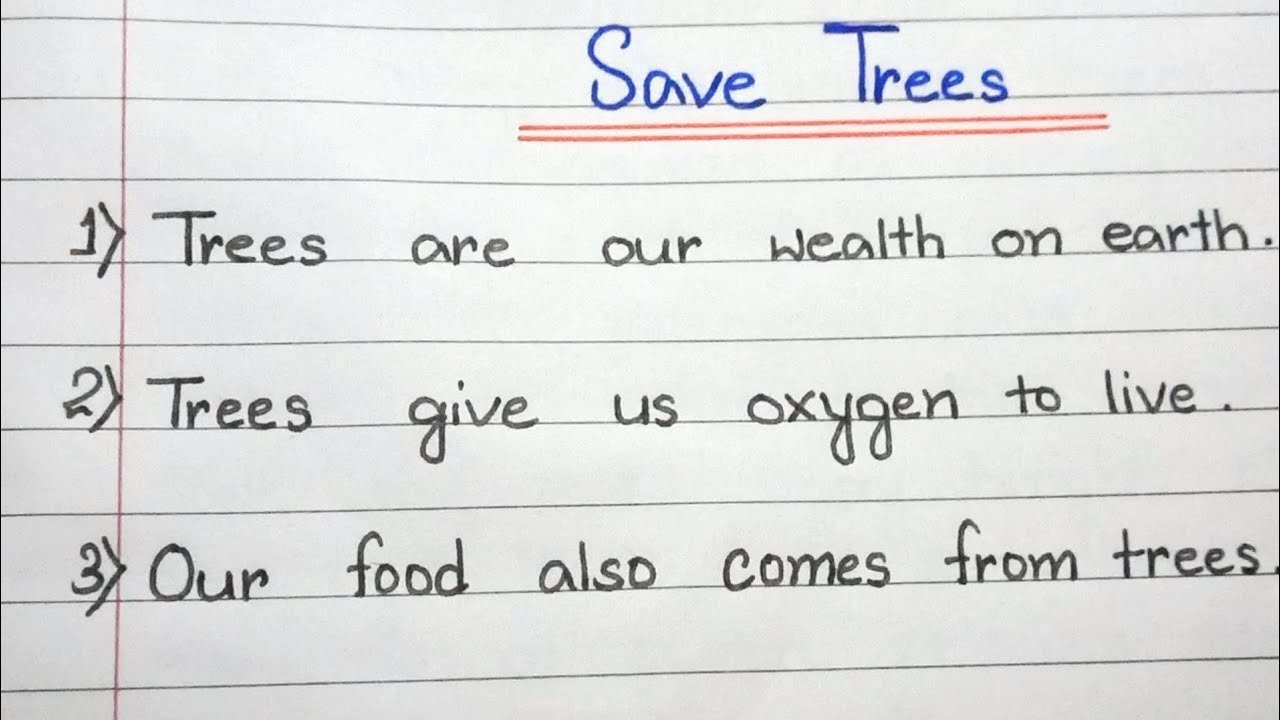 Save Trees
1) Trees are our wealth on earth.
2) Trees give us oxygen to live.
3) Our food also comes from trees.